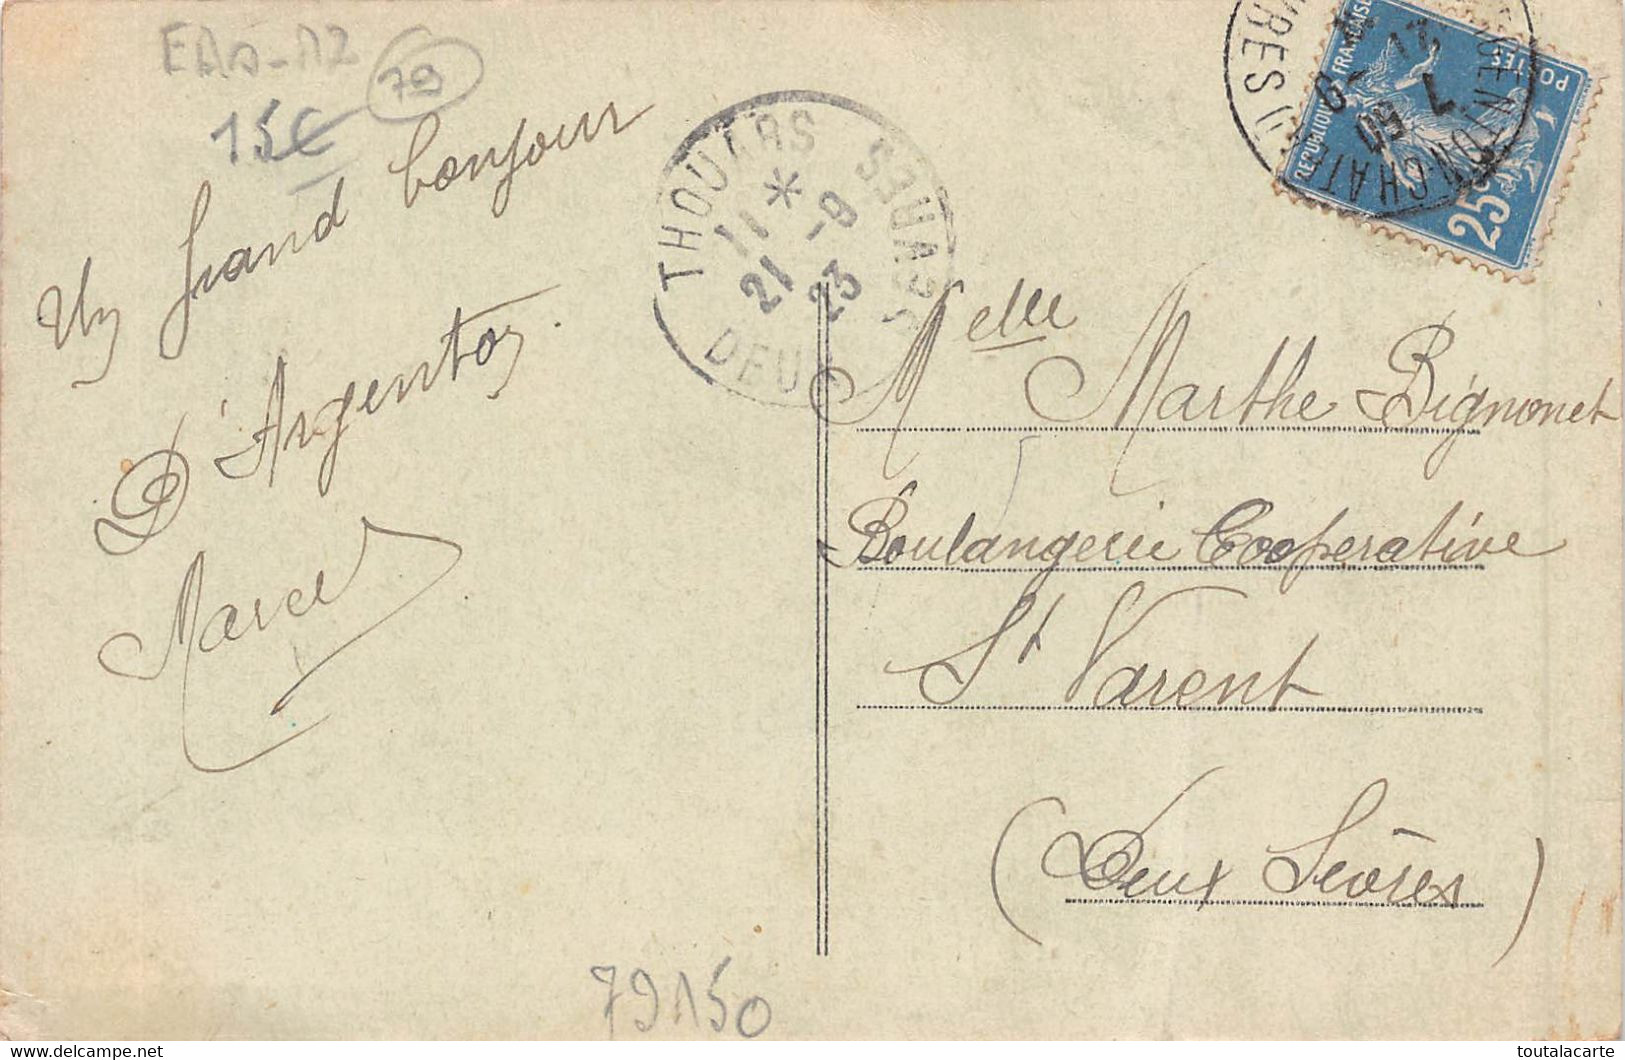 EA0-A2
79
15€
Un grand bonjour
D'Argenton.
Marcel
THOUARS
DEUX SEVRES
11 * -9
21 23
REPUBLIQUE FRANÇAISE
POSTES
25
Melle Marthe Bignonet
Boulangerie Cooperative
St Varent
(Deux Sèvres)
79150
delcampe.net
toutalacarte